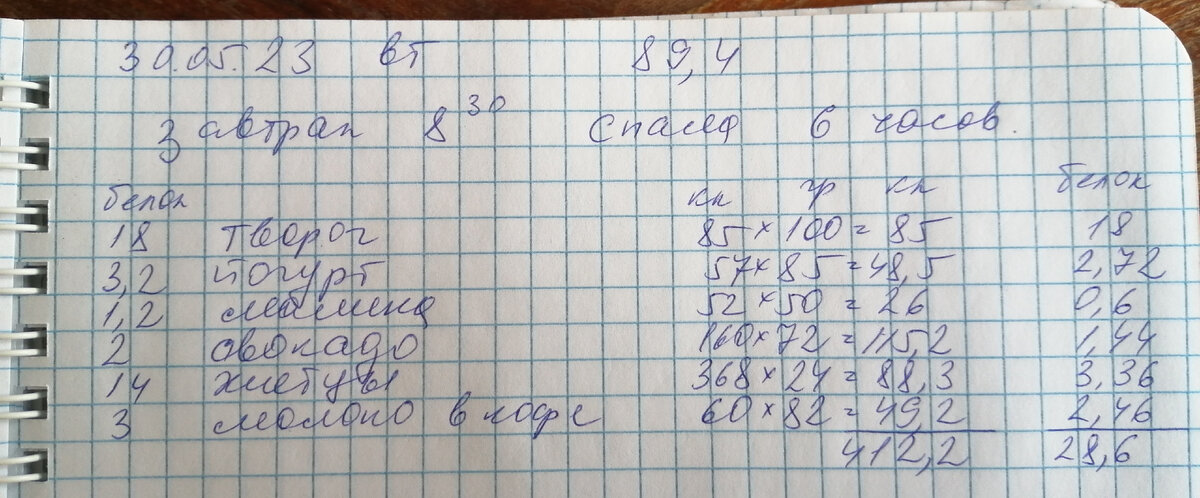 30.05.23 вт 89,4
Завтрак 8 30 Спала 6 часов.
белок кк гр кк белок
18 творог 85 × 100 = 85 18
3,2 йогурт 57 × 85 = 48,5 2,72
1,2 малина 52 × 50 = 26 0,6
2 авокадо 160 × 72 = 115,2 1,44
14 хлебцы 368 × 24 = 88,3 3,36
3 молоко в кофе 60 × 82 = 49,2 2,46
412,2 28,6